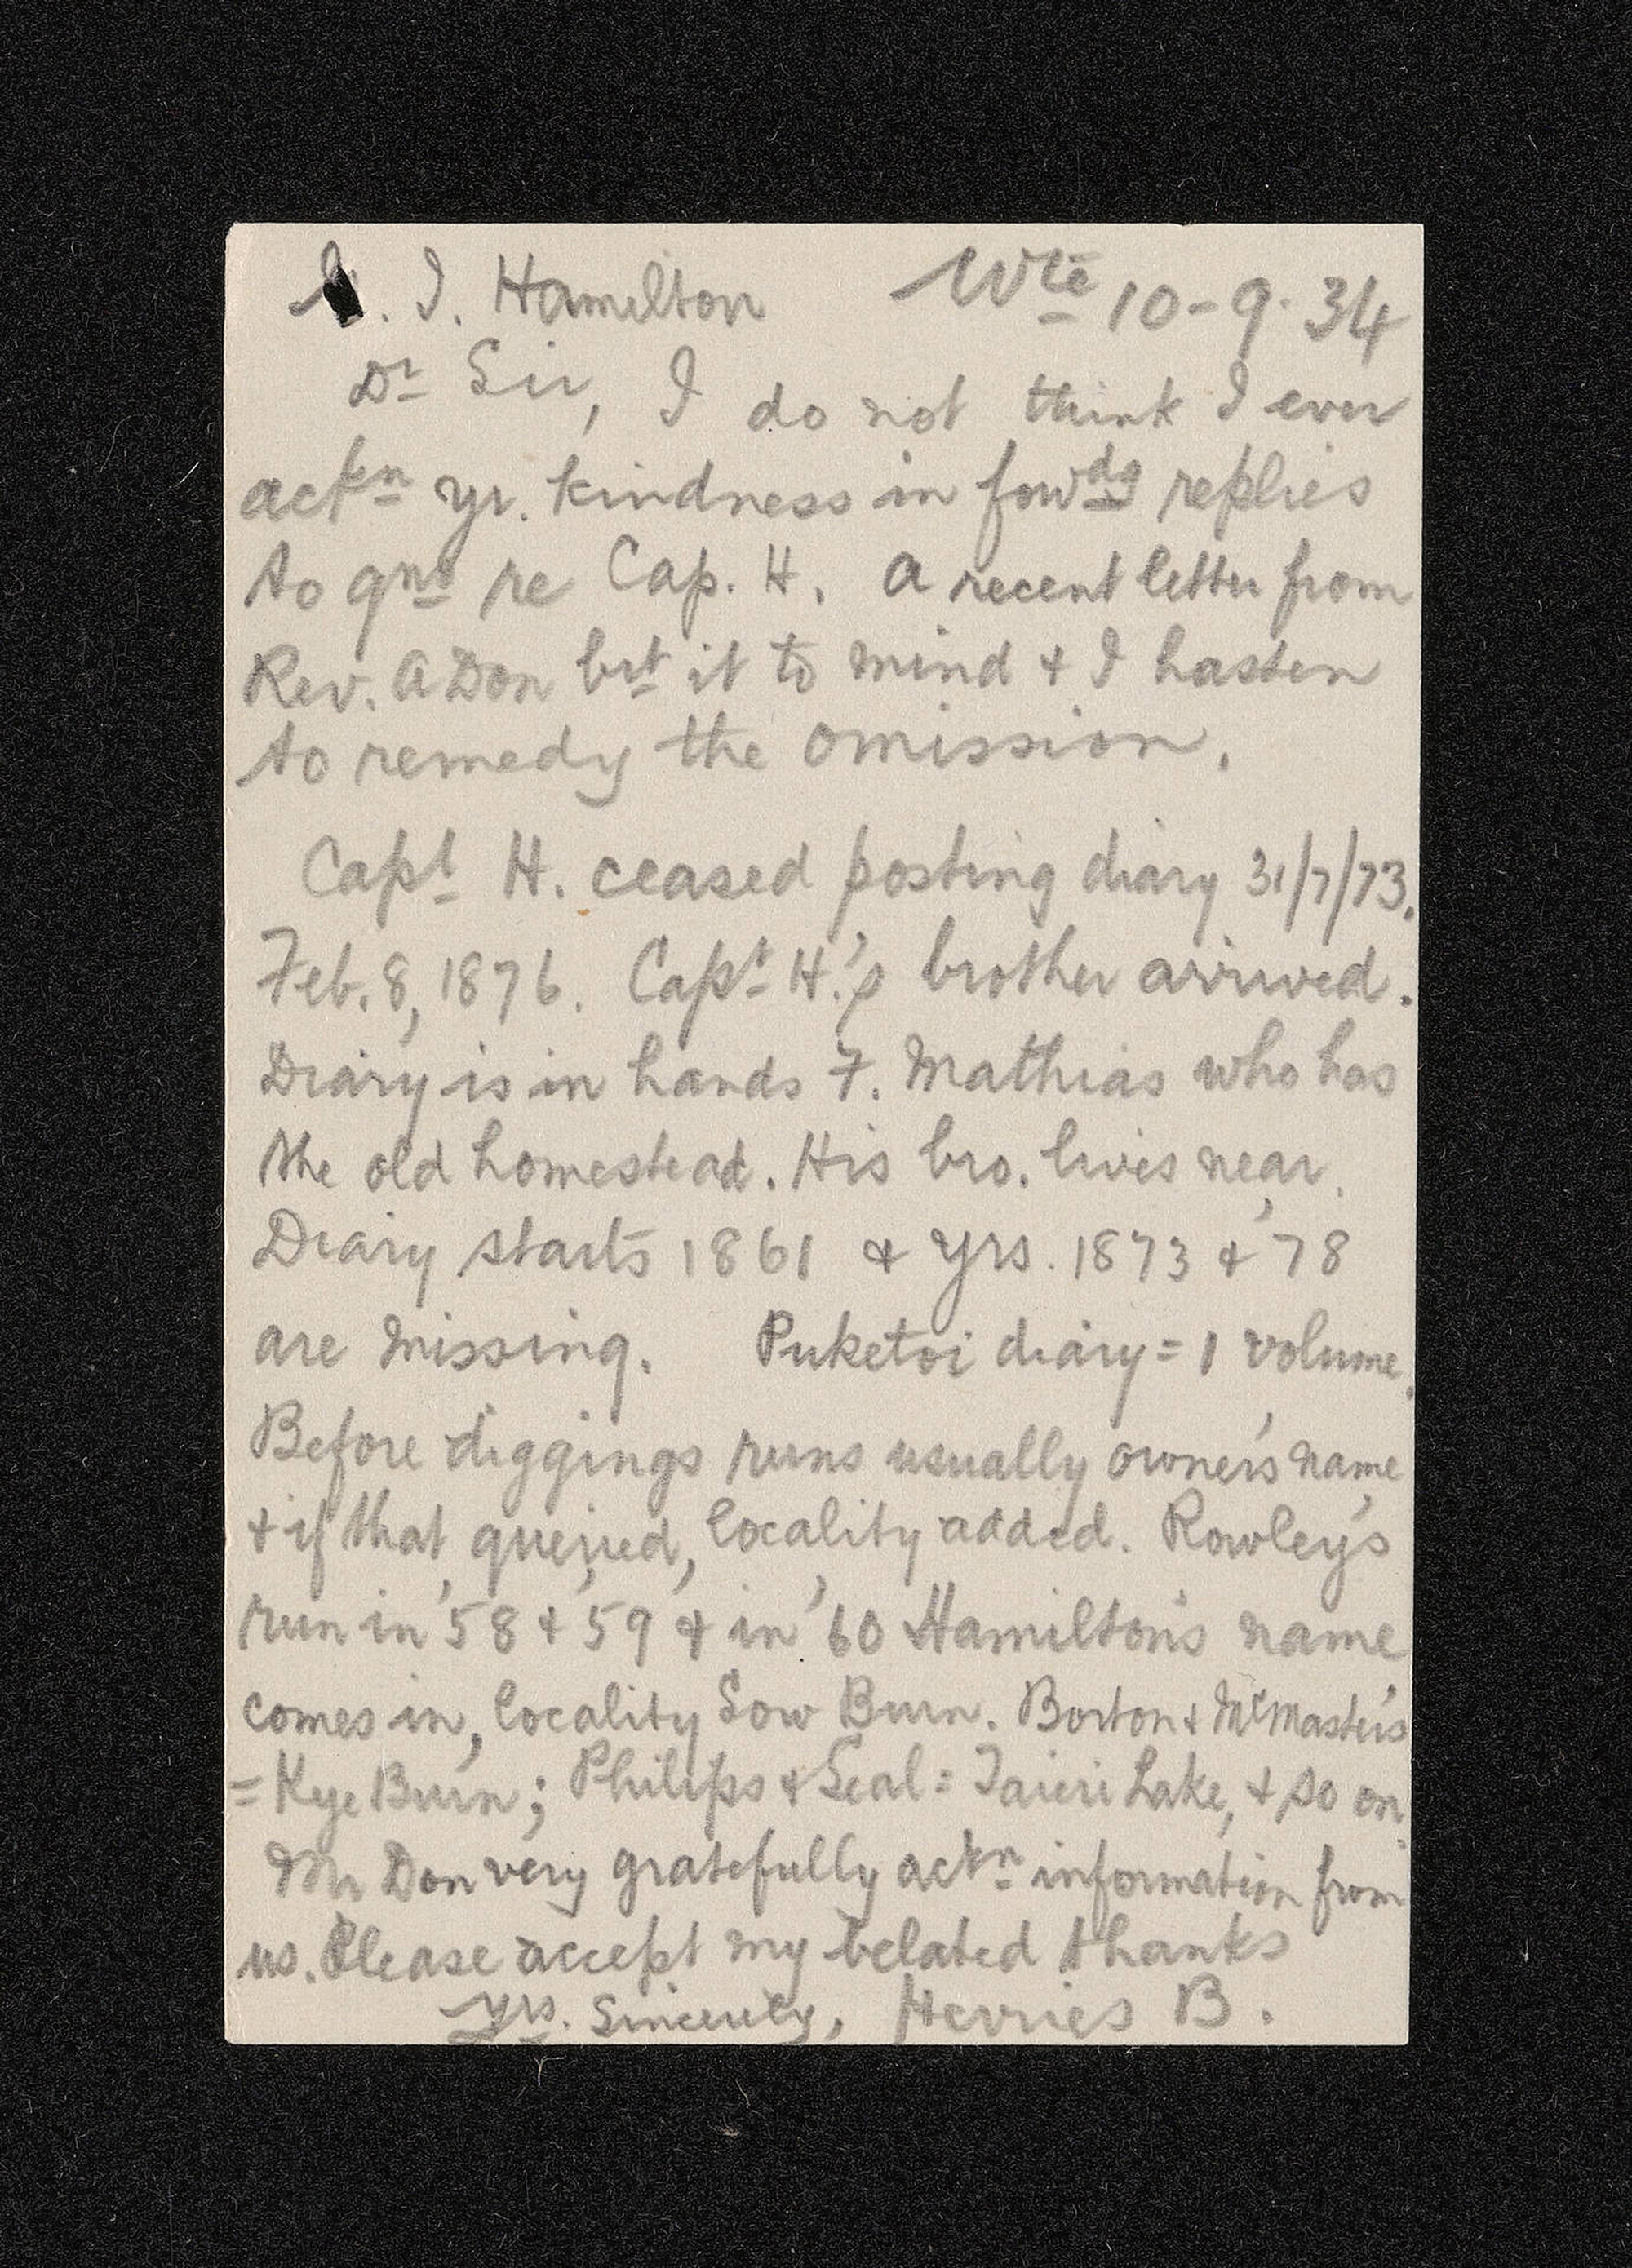 . J. Hamilton Wte 10-9-34
Dr Sir, I do not think I ever
ackn yr. kindness in fowdg replies
to qns re Cap. H. A recent letter from
Rev. A Don brt it to mind & I hasten
to remedy the omission.
Capt H. ceased posting diary 31/7/73.
Feb. 8, 1876. Capt H.'s brother arrived.
Diary is in hands F. Mathias who has
the old homestead. His bro. lives near.
Diary starts 1861 & yrs. 1873 & '78
are missing. Puketoi diary = 1 volume.
Before diggings runs usually owner's name
& if that queried, locality added. Rowley's
run in '58 & '59 & in '60 Hamilton's name
comes in, locality Sow Burn. Borton & McMaster's
= Kye Burn; Philips & Seal = Taieri Lake, & so on.
Mr Don very gratefully ackn information from
us. Please accept my belated thanks
Yrs. Sincerely, Herries B.